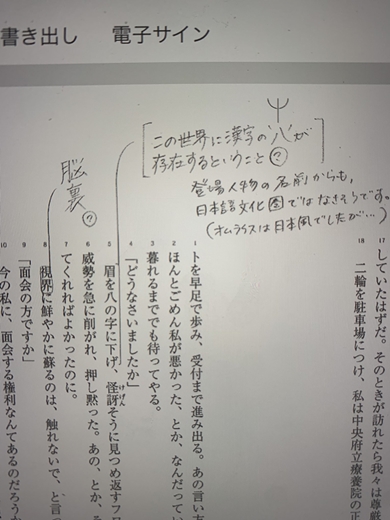 書き出し　電子サイン
この世界に漢字の"八"が
存在するということ?
登場人物の名前からも、
日本語文化圏ではなさそうです。
(オムライスは日本風でしたが…)
脳裏?
17 していたはずだ。そのときが訪れたら我々は尊厳
18 二輪を駐車場につけ、私は中央府立療養院の正
1 トを早足で歩み、受付まで進み出る。あの言い方
2 ほんとごめん私が悪かった、とか、なんだってい
3 暮れるまででも待ってやる。
4 「どうなさいましたか」
5 眉を八の字に下げ、怪訝そうに見つめ返すフロ
6 威勢を急に削がれ、押し黙った。あの、とか、そ
7 てくれればよかったのに。
8 視界に鮮やかに蘇るのは、触れないで、と言っ
9 「面会の方ですか」
10 今の私に、面会する権利なんてあるのだろうか